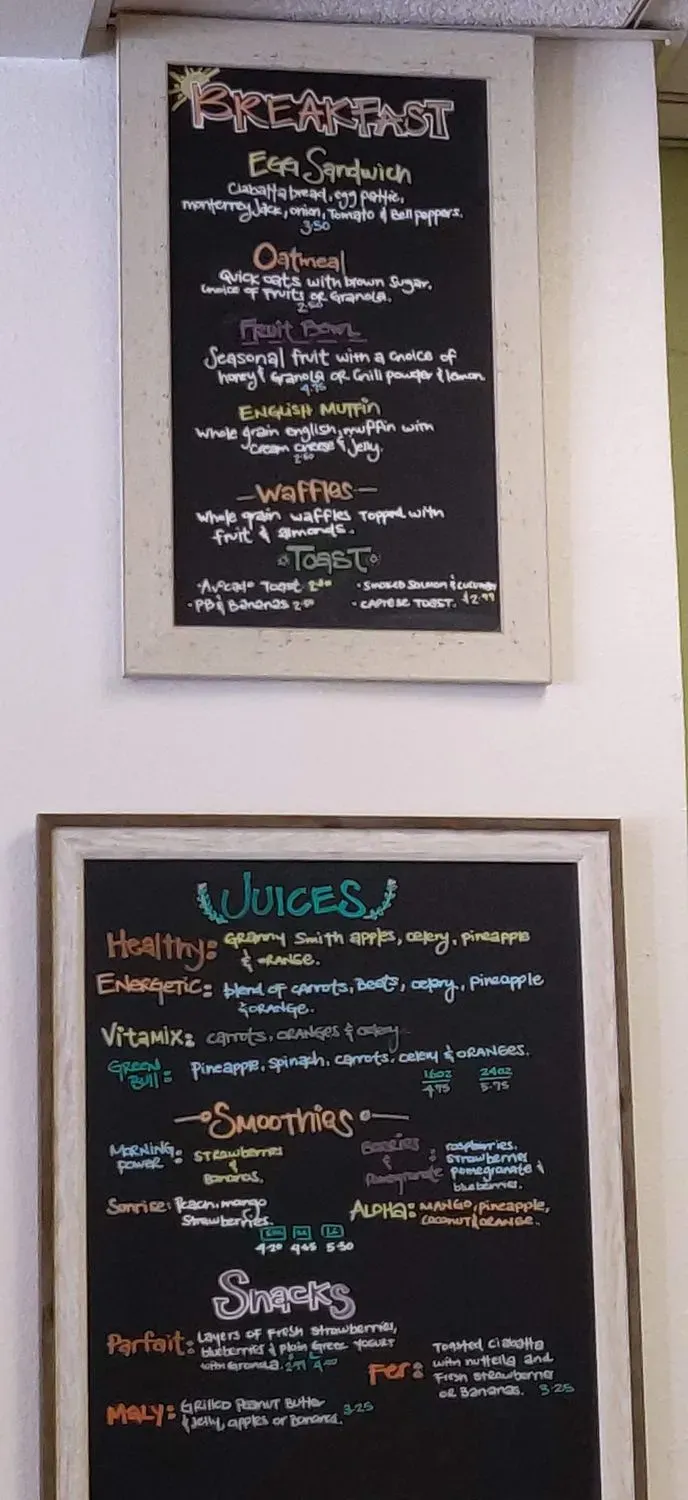 BREAKFAST
Egg Sandwich
Ciabatta bread, egg pattie,
monterrey Jack, onion, Tomato & Bell peppers.
3.50
Oatmeal
Quick oats with brown Sugar,
choice of Fruits or Granola.
Fruit Bowl
Seasonal fruit with a choice of
honey & Granola or Chili powder & lemon
4.75
ENGLISH MUFFIN
Whole grain english muffin with
cream cheese & Jelly.
—Waffles—
Whole grain waffles Topped with
fruit & almonds.
TOAST
·Avocado Toast ·SMOKED SALMON &
·PB & Bananas ·CAPRESE TOAST. $2.99
JUICES
Healthy: Granny Smith apples, celery, pineapple
& ORANGE.
ENERGETIC: blend of carrots, Beets, celery, pineapple
& ORANGE.
Vitamix: carrots, ORANGES & celery
GREEN Bull: pineapple, spinach, carrots, celery & ORANGES.
16oz 24oz
4.75 5.75
Smoothies
MORNING POWER: STRAWBERRIES & BANANAS.
Berries & Pomegranate: raspberries, strawberries pomegranate & blueberries.
Sunrise: Peach, mango
Strawberries.
ALOHA: MANGO, pineapple,
COCONUT & ORANGE.
4.20 5.50
Snacks
Parfait: Layers of Fresh strawberries,
blueberries & plain Greek YOGURT
with Granola.
Fer: Toasted Ciabatta
with nuttella and
Fresh strawberries
or Bananas. 3.25
MALY: GRILLED PEANUT BUTTER
& Jelly, apples or Banana. 3.25